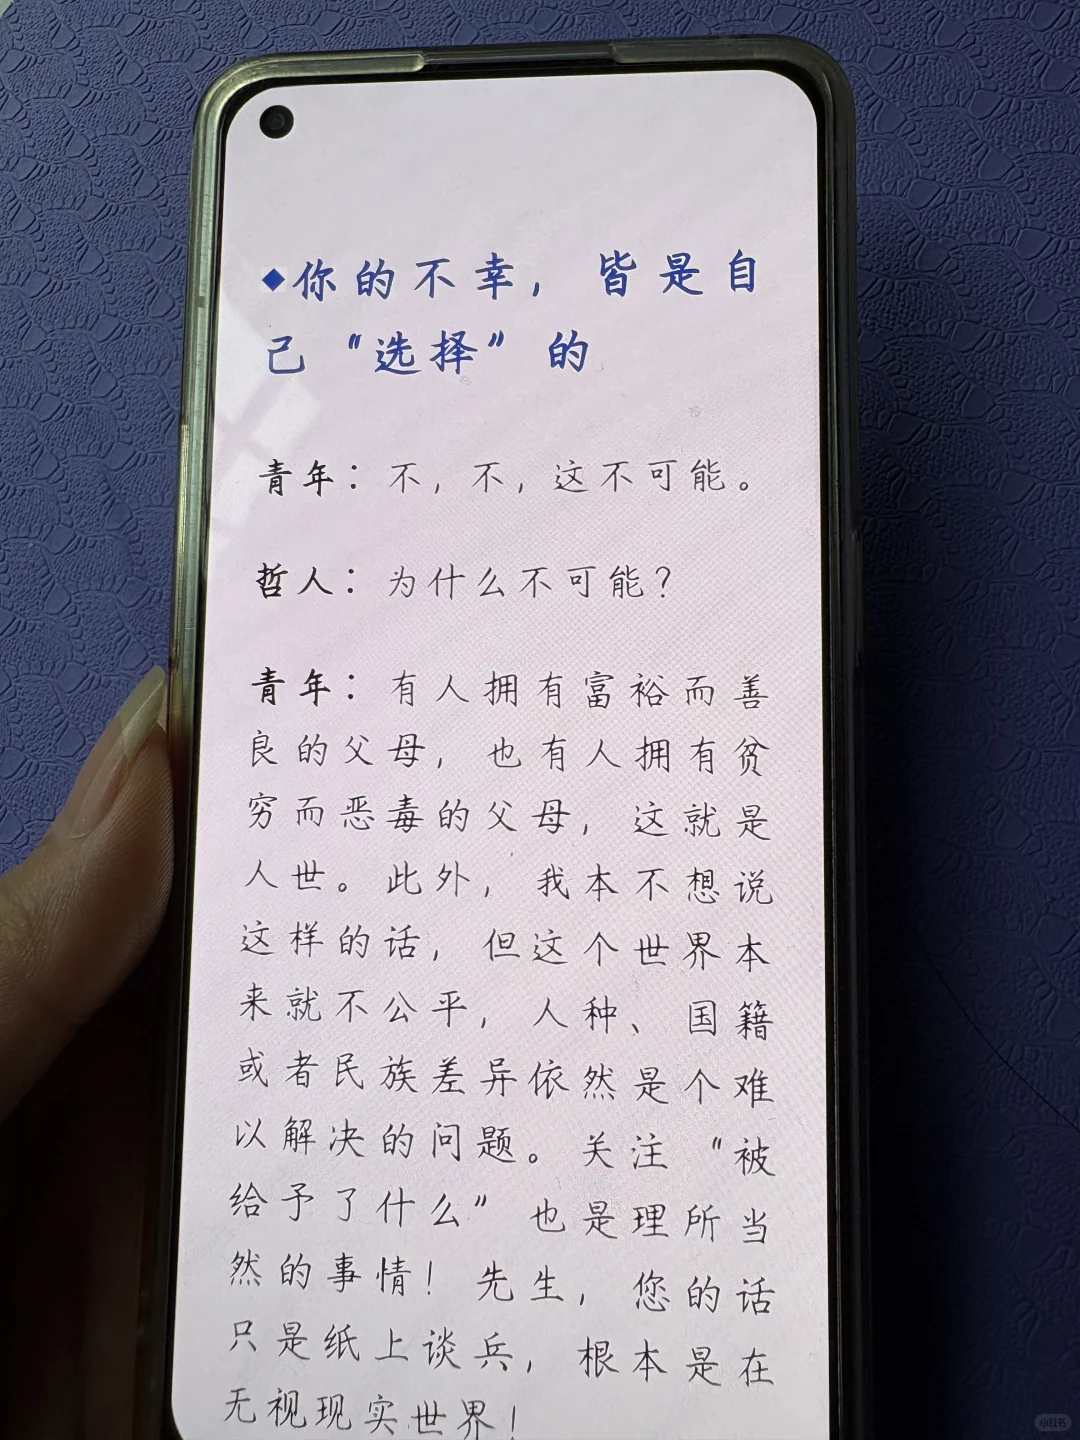 ◆你的不幸，皆是自
己“选择”的
青年：不，不，这不可能。
哲人：为什么不可能？
青年：有人拥有富裕而善
良的父母，也有人拥有贫
穷而恶毒的父母，这就是
人世。此外，我本不想说
这样的话，但这个世界本
来就不公平，人种、国籍
或者民族差异依然是个难
以解决的问题。关注“被
给予了什么”也是理所当
然的事情！先生，您的话
只是纸上谈兵，根本是在
无视现实世界！
小红书